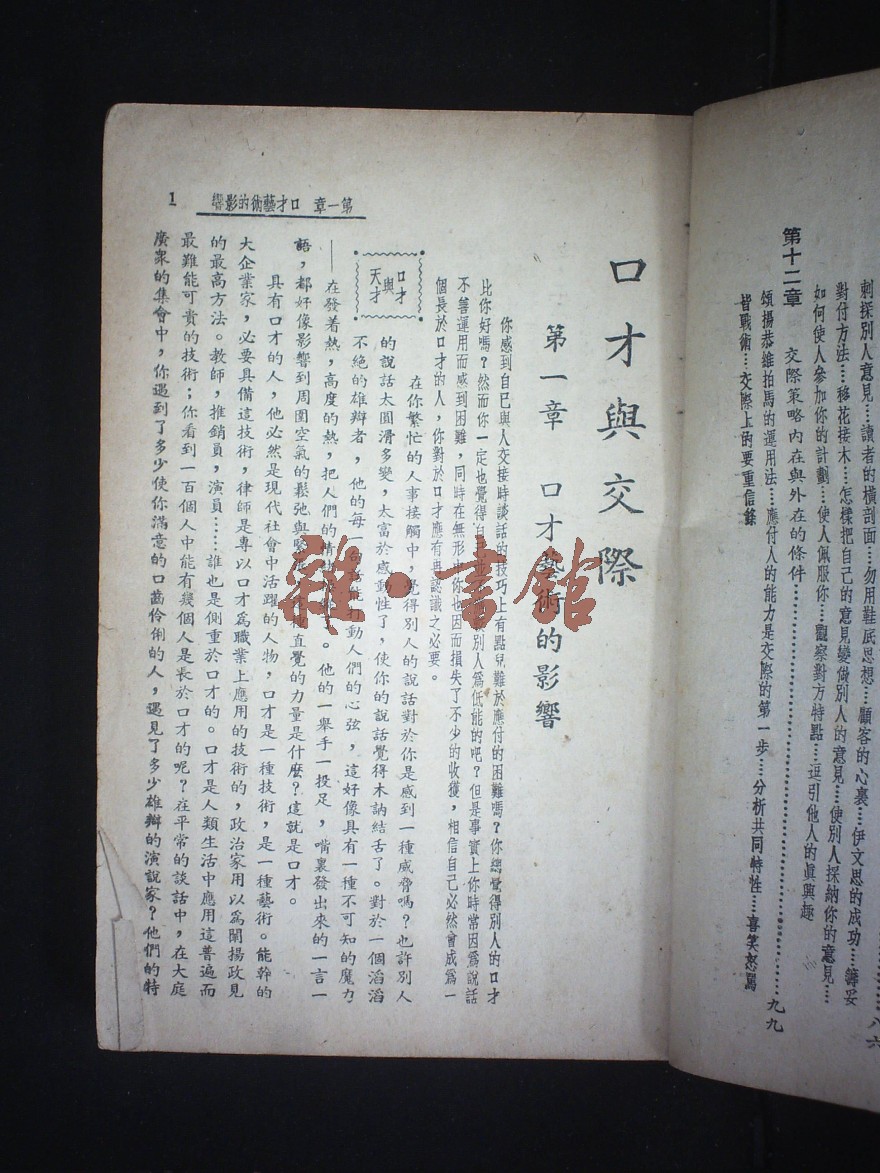 刺探別人意見……讀者的橫剖面……勿用鞋底思想……顧客的心裏……伊文思的成功……籌妥
對付方法……移花接木……怎樣把自己的意見變做別人的意見……使別人採納你的意見……
如何使人參加你的計劃……使人佩服你……觀察對方特點……逗引他人的眞興趣
第十二章 交際策略內在與外在的條件……九九
頌揚恭維拍馬的運用法……應付人的能力是交際的第一步……分析共同特性……喜笑怒罵
皆戰術……交際上的要重信條
口才與交際
第一章 口才藝術的影響
你感到自己與人交接時談話的技巧上有點兒難於應付的困難嗎?你總覺得別人的口才
比你好嗎?然而你一定也覺得自 別人爲低能的吧?但是事實上你時常因爲說話
不善運用而感到困難,同時在無形中你也因而損失了不少的收獲,相信自己必然會成爲一
個長於口才的人,你對於口才應有再認識之必要。
口才與天才
在你繁忙的人事接觸中,覺得別人的說話對於你是感到一種威脅嗎?也許別人
的說話太圓滑多變,太富於感動性了,使你的說話覺得木訥結舌了。對於一個滔滔
不絕的雄辯者,他的每一句 能打動人們的心弦,這好像具有一種不可知的魔力
——在發着熱,高度的熱,把人們的情 了。他的一舉手一投足,嘴裏發出來的一言一
語,都好像影響到周圍空氣的鬆弛與緊 直覺的力量是什麼?這就是口才。
具有口才的人,他必然是現代社會中活躍的人物,口才是一種技術,是一種藝術。能幹的
大企業家,必要具備這技術,律師是專以口才爲職業上應用的技術的,政治家用以爲闡揚政見
的最高方法。教師,推銷員,演員……誰也是側重於口才的。口才是人類生活中應用這普遍而
最難能可貴的技術;你看到一百個人中能有幾個人是長於口才的呢?在平常的談話中,在大庭
廣衆的集會中,你遇到了多少使你滿意的口齒伶俐的人,遇見了多少雄辯的演說家?他們的特
第一章 口才藝術的影響 1
雜·書館